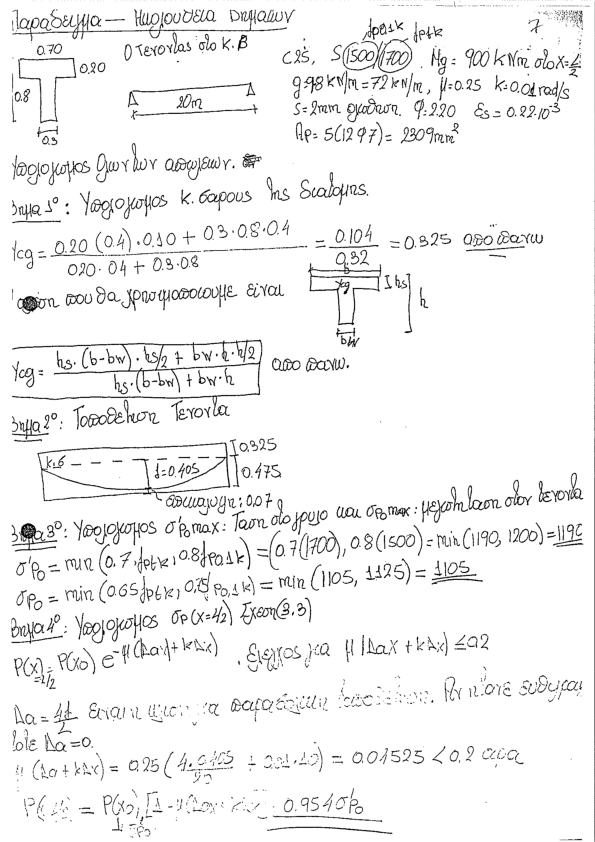 Παράδειγμα — Ακολουθία Βημάτων
7
fp01k fptk
0.70
0.20
0.8
0.3
Ο τένοντας στο κ.β
20m
C25, S 1500/1700. Mg = 900 kNm στο x = L/2
g = 72 kN/m, μ = 0.25 k = 0.01 rad/s
s = 2mm ολίσθηση. φ = 2.20 εs = 0.22·10^-3
Ap = 5(12 Φ7) = 2309mm²
Υπολογισμός όλων των απωλειών.
Βήμα 1º: Υπολογισμός κ. βάρους της διατομής.
Ycg = (0.20 (0.4)·0.10 + 0.3·0.8·0.4) / (0.20·0.4 + 0.3·0.8) = 0.104/0.32 = 0.325 από πάνω
που θα χρησιμοποιούμε είναι
b
Ycg
hs
h
bw
Ycg = (hs·(b-bw)·hs/2 + bw·h·h/2) / (hs·(b-bw) + bw·h) από πάνω.
Βήμα 2º: Τοποθέτηση Τένοντα
κ.β
f=0.405
0.325
0.475
επικάλυψη: 0.07
Βήμα 3º: Υπολογισμός σ'p0max: Τάση στο γρύλο και σp0max: μέγιστη τάση στον τένοντα
σ'p0 = min (0.7 fptk, 0.8 fp01k) = (0.7(1700), 0.8(1500) = min(1190, 1200) = 1190
σp0 = min (0.65 fptk, 0.75 fp0,1k) = min (1105, 1125) = 1105
Βήμα 4º: Υπολογισμός σp(x=L/2) Σχέση (3.3)
P(x)=P(x0) e^-μ(Δα+kΔx). Έλεγχος για μ|Δαx + kΔx| ≤ 0.2
x=L/2
Δα = 4f/L είναι η γωνία για παραβολική τοποθέτηση. Για
τότε Δα=0.
μ (Δα + kΔx) = 0.25 (4·0.405/20 + 0.01·10) = 0.01525 < 0.2 άρα
= P(x0) = 0.954σ'p0